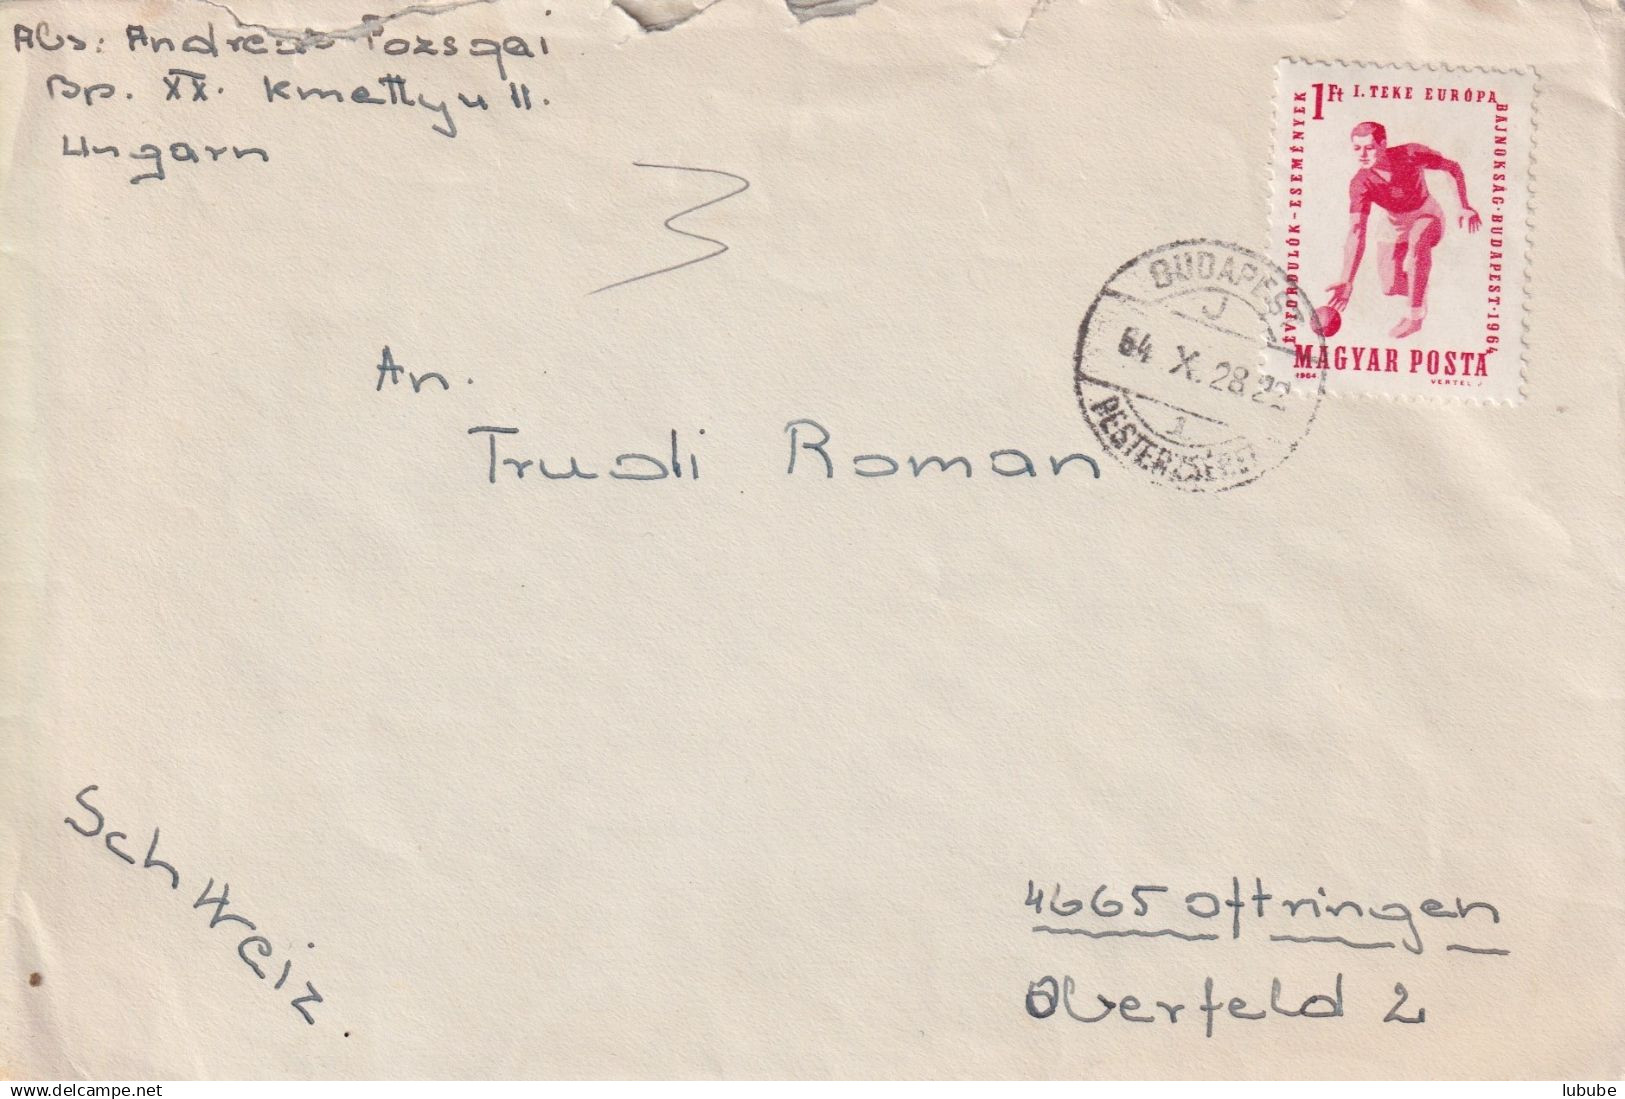 Abs: Andreas Pozsgai
Bp. XX. Kmettyu 11.
Ungarn
1Ft I. TEKE EURÓPA
BAJNOKSÁG·BUDAPEST·1964
ÉVFORDULÓK - ESEMÉNYEK
MAGYAR POSTA
1964 VERTEL J
BUDAPEST
J
64 X. 28 22
1
An.
Trudi Roman
Schweiz.
4665 Oftringen
Oberfeld 2
lubube